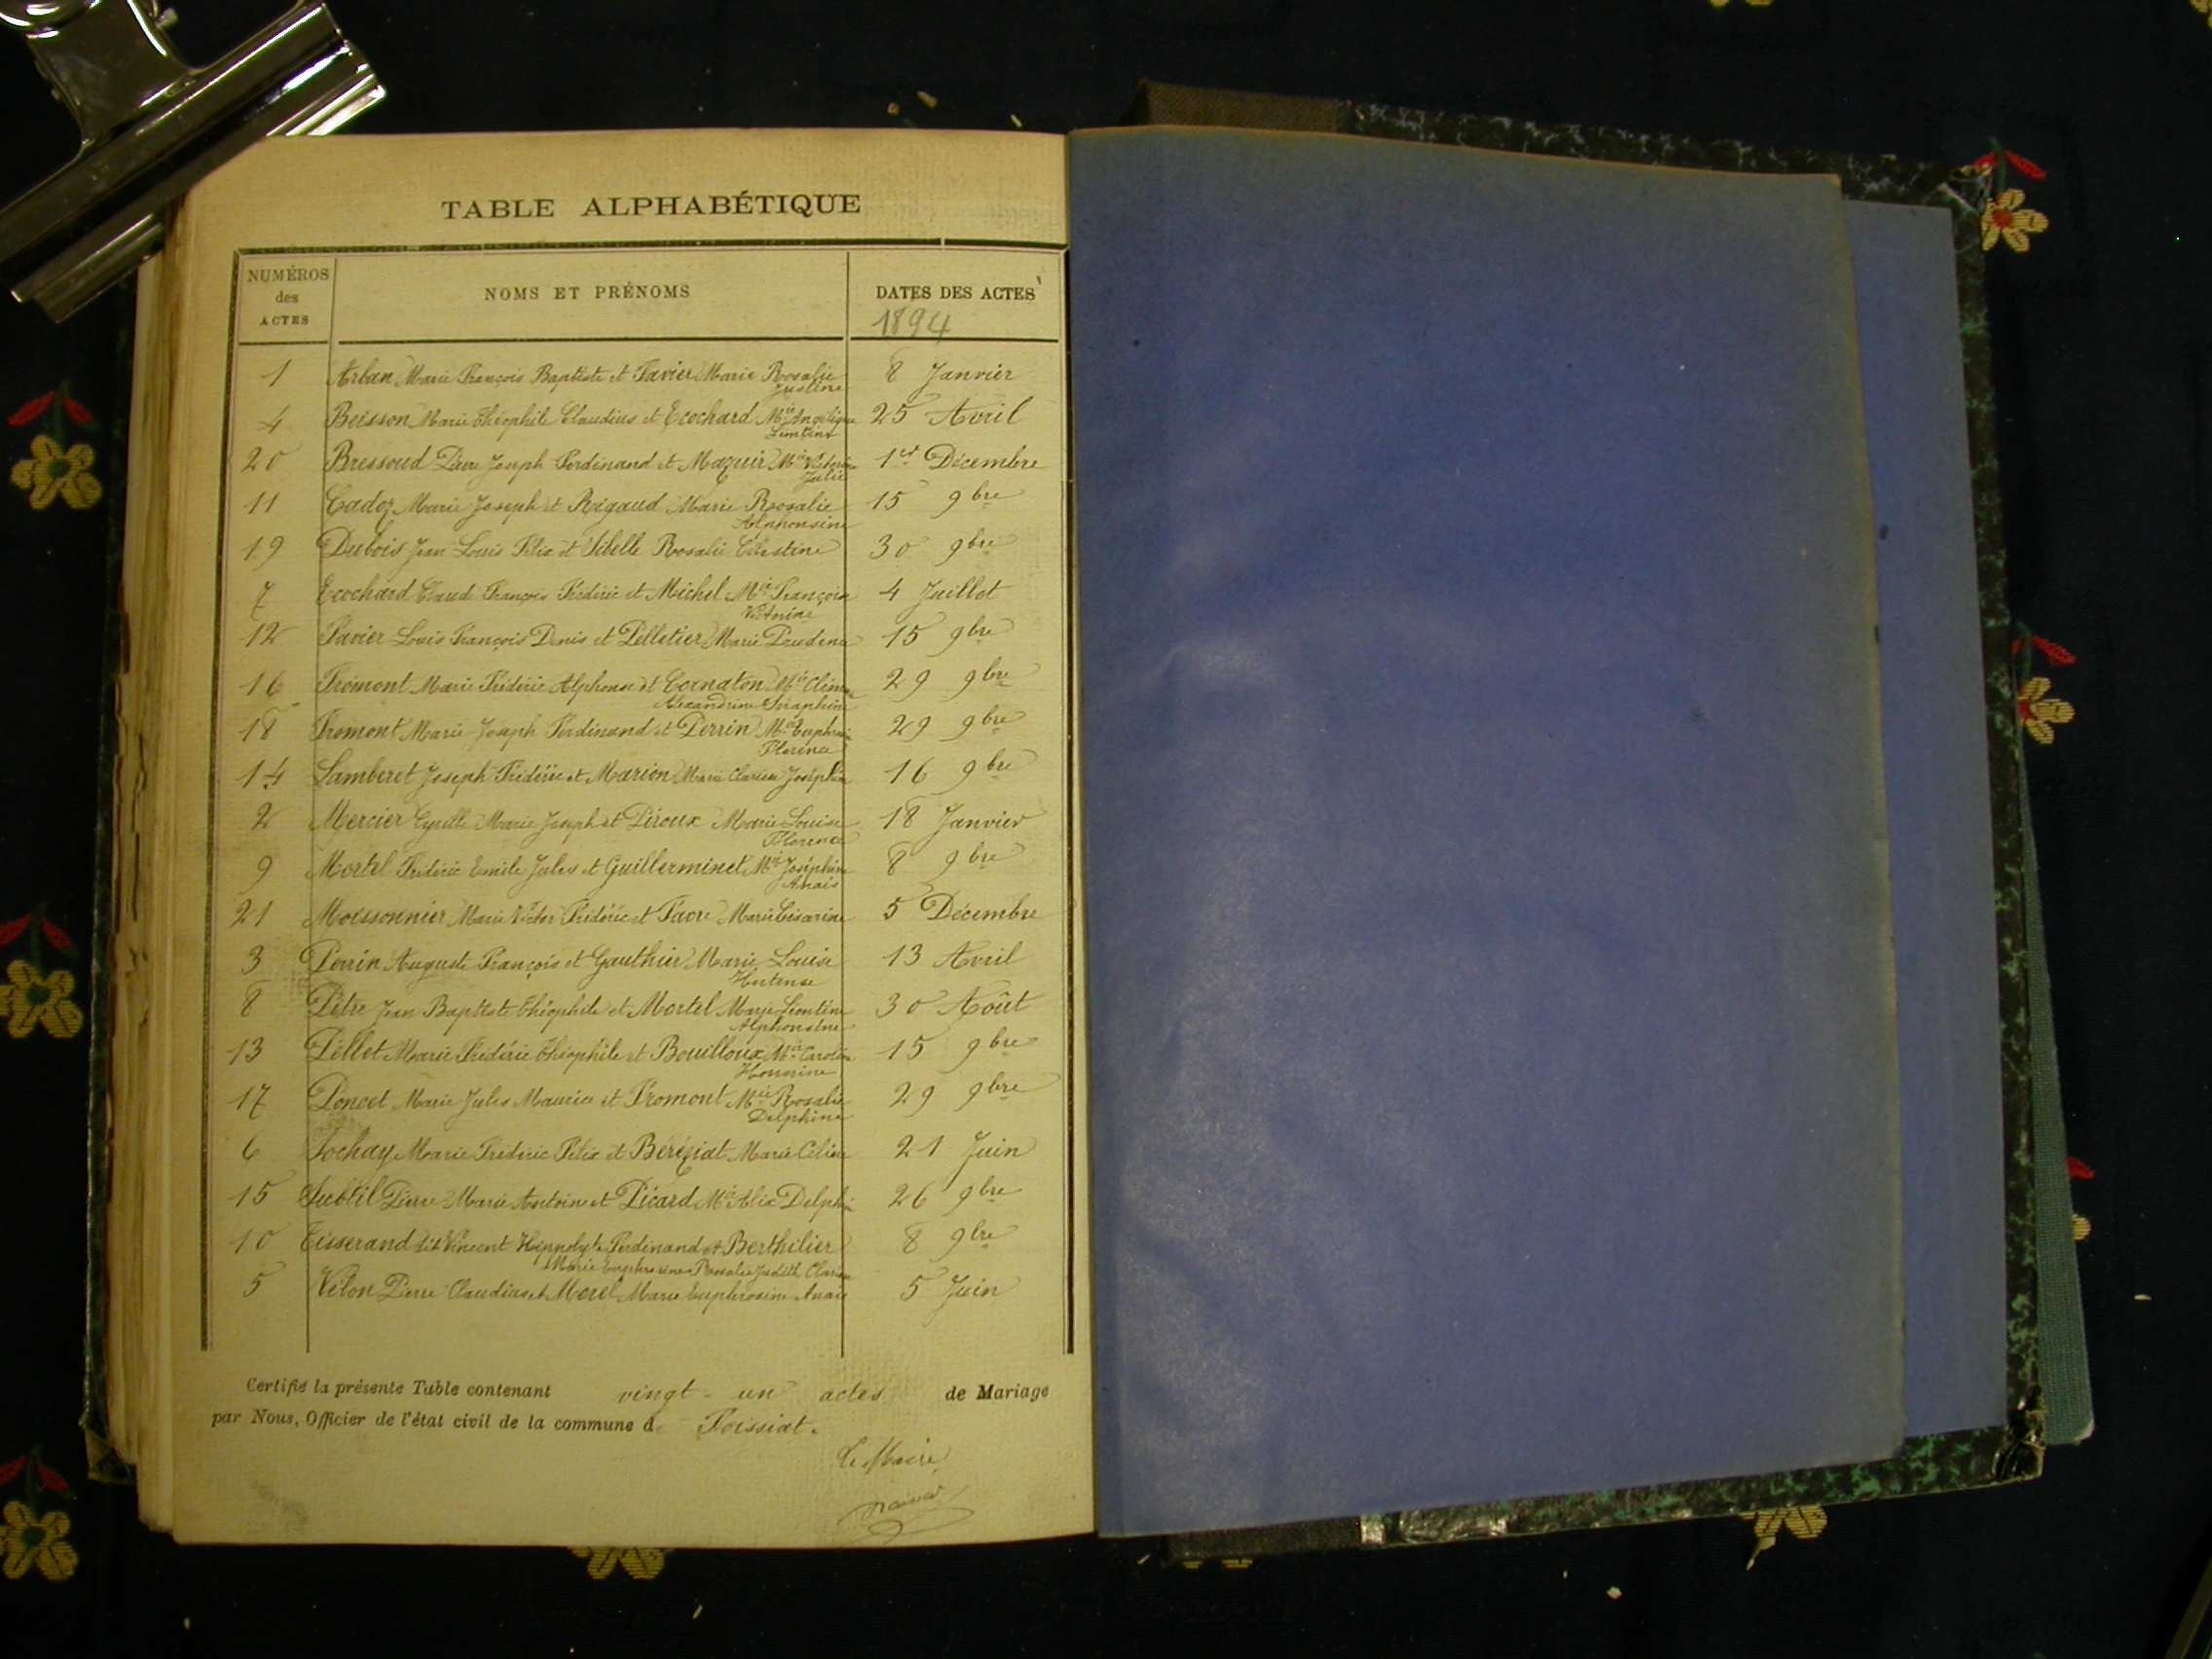 TABLE ALPHABÉTIQUE
NUMÉROS des ACTES NOMS ET PRÉNOMS DATES DES ACTES
1894
1 Arban Marie François Baptiste et Favier Marie Rosalie 8 Janvier
Justine
4 Buisson Marie Théophile Claudius et Ecochard Mie Angélique 25 Avril
Léontine
20 Bressoud Pierre Joseph Ferdinand et Mazuir Mie 1er Décembre
Julie
11 Cadoz Marie Joseph et Rigaud Marie Rosalie 15 9bre
Alphonsine
19 Dubois Jean Louis Félix et Sibelle Rosalie Célestine 30 9bre
7 Ecochard Claud François Frédéric et Michel Mie Françoise 4 Juillet
Victorine
12 Favier Louis François Denis et Pelletier Marie Prudence 15 9bre
16 Fromont Marie Frédéric Alphonse et Cornaton Mie 29 9bre
Alexandrine Séraphine
18 Fromont Marie Joseph Ferdinand et Perrin Mie 29 9bre
Florence
14 Lamberet Joseph Frédéric et Marion Marie Clarisse Joséphine 16 9bre
2 Mercier Cyrille Marie Joseph et Piroux Marie Louise 18 Janvier
Florence
9 Mortel Frédéric Emile Jules et Guillerminet Mie Joséphine 8 9bre
Anais
21 Moissonnier Marie Victor Frédéric et Favre Marie Césarine 5 Décembre
3 Perrin Auguste François et Gauthier Marie Louise 13 Avril
Hortense
8 Pitre Jean Baptiste Théophile et Mortel Marie Léontine 30 Août
Alphonsine
13 Pellet Marie Frédéric Théophile et Bouilloux Mie Caroline 15 9bre
Honorine
17 Poncet Marie Jules Maurice et Fromont Mie Rosalie 29 9bre
Delphine
6 Sochay Marie Frédéric Félix et Béréziat Marie Céline 21 Juin
15 Subtil Pierre Marie Antoine et Picard Mie Alix Delphi 26 9bre
10 Tisserand dit Vincent Hyppolyte Ferdinand et Berthilier 8 9bre
Marie Euphrosine Rosalie Judith Clarisse
5 Vilon Pierre Claudius et Morel Marie Euphrosine Anais 5 Juin
Certifié la présente Table contenant vingt-un actes de Mariage
par Nous, Officier de l'état civil de la commune de Foissiat.
Le Maire